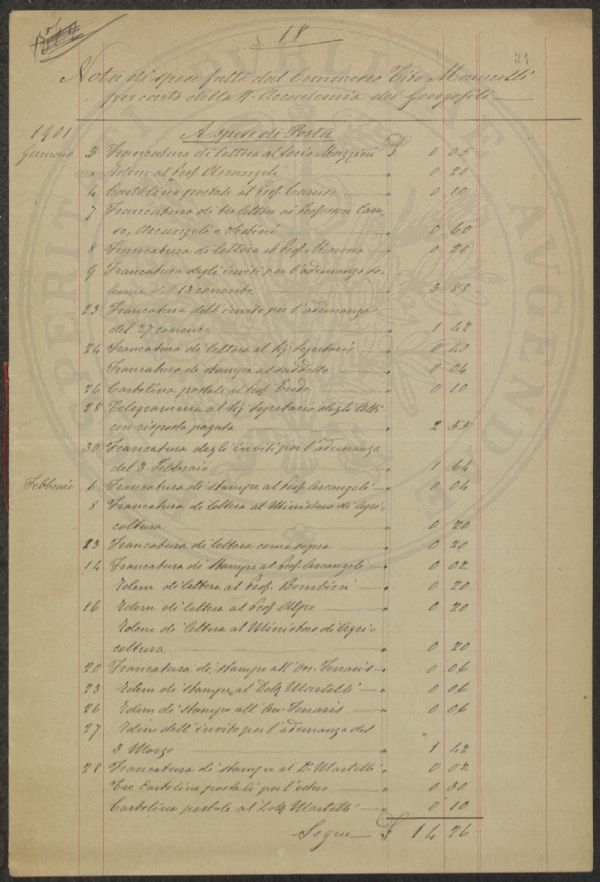 18
34
Nota di spese fatte dal Commesso Tito Marucelli
per conto della R. Accademia dei Georgofili
1901
A spese di Posta
Gennaio 3 Francatura di lettera al Socio £ 0 05
" Idem al Prof. Arcangeli " 0 20
4 Cartolina postale al Prof. Caruso " 0 10
7 Francatura di tre lettere ai Professori Caru-
so, Arcangeli e " 0 60
8 Francatura di lettera al Prof. " 0 20
9 Francatura degli inviti per l'adunanza so-
lenne del 13 corrente " 3 88
23 Francatura dell'invito per l'adunanza
del 27 corrente " 1 42
24 Francatura di lettera al Segretario " 0 40
Francatura di stampe al suddetto " 0 24
26 Cartolina postale al Prof. " 0 10
28 Telegramma al Segretario degli Atti
con risposta pagata " 2 55
30 Francatura degli inviti per l'adunanza
del 3 Febbraio " 1 64
Febbraio 6 Francatura di stampe al Prof. Arcangeli " 0 04
8 Francatura di lettera al Ministero di Agri-
coltura " 0 20
23 Francatura di lettera come sopra " 0 20
14 Francatura di stampe al Prof. Arcangeli " 0 02
Idem di lettera al Prof. Bombicci " 0 20
16 Idem di lettera al Prof. Alpe " 0 20
Idem di lettera al Ministero di Agri-
coltura " 0 20
20 Francatura di stampe all'On. " 0 06
23 Idem di stampe al Dott. Martelli " 0 06
26 Idem di stampe all'On. " 0 06
27 Idem dell'invito per l'adunanza del
3 Marzo " 1 42
28 Francatura di stampe al D. Martelli " 0 02
Tre Cartoline postali per l'estero " 0 30
Cartolina postale al Dott. Martelli " 0 10
Segue £ 14 26